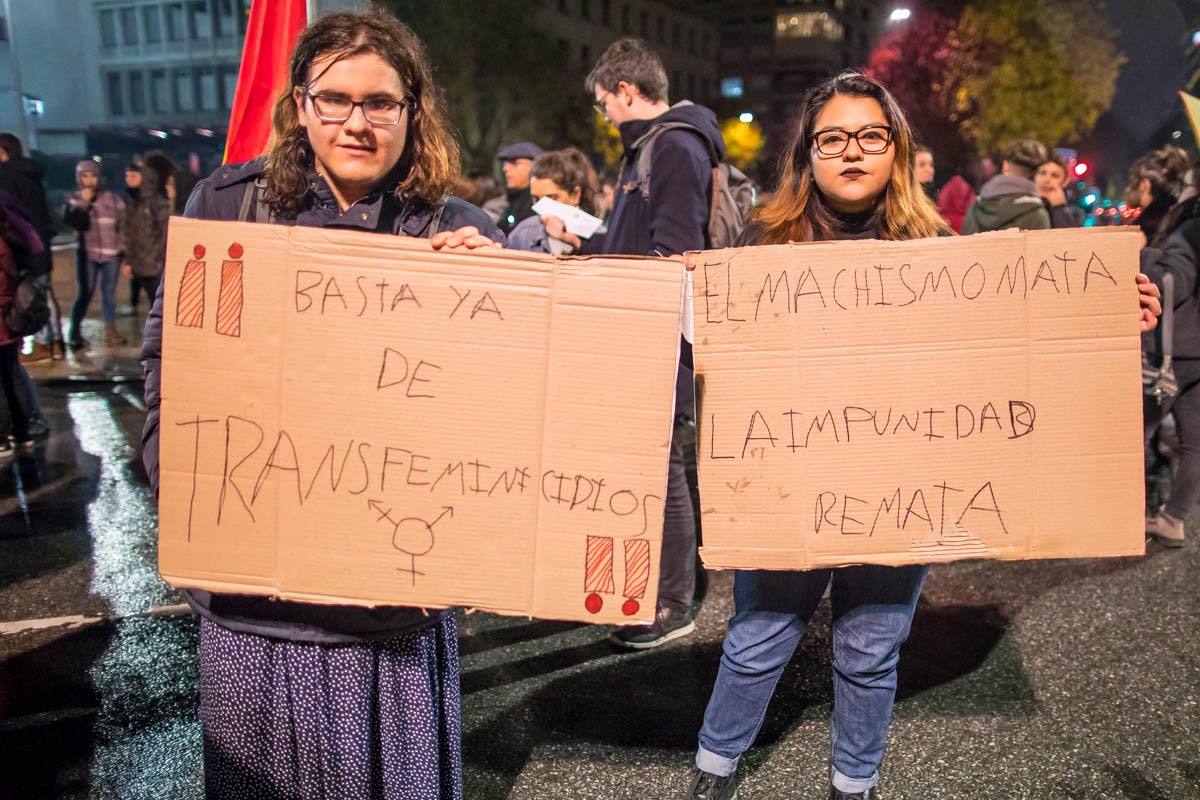 ¡¡ BASTA YA
DE
TRANSFEMINICIDIOS !!
EL MACHISMO MATA
LA IMPUNIDAD
REMATA